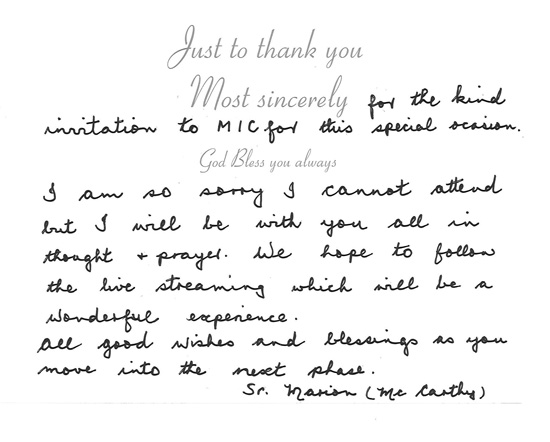 Just to thank you
Most sincerely for the kind
invitation to MIC for this special ocasion.
God Bless you always
I am so sorry I cannot attend
but I will be with you all in
thought + prayer. We hope to follow
the live streaming which will be a
wonderful experience.
All good wishes and blessings as you
move into the next phase.
Sr. Marion (Mc Carthy)